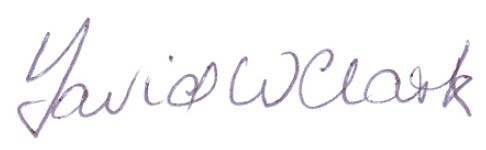 David W Clark